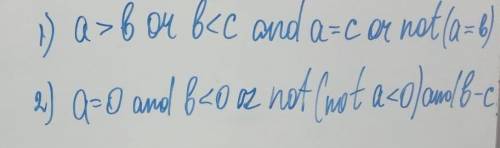 1) a > b or b < c and a = c or not (a = b)
2) a = 0 and b < 0 or not (not a < 0) and b - c